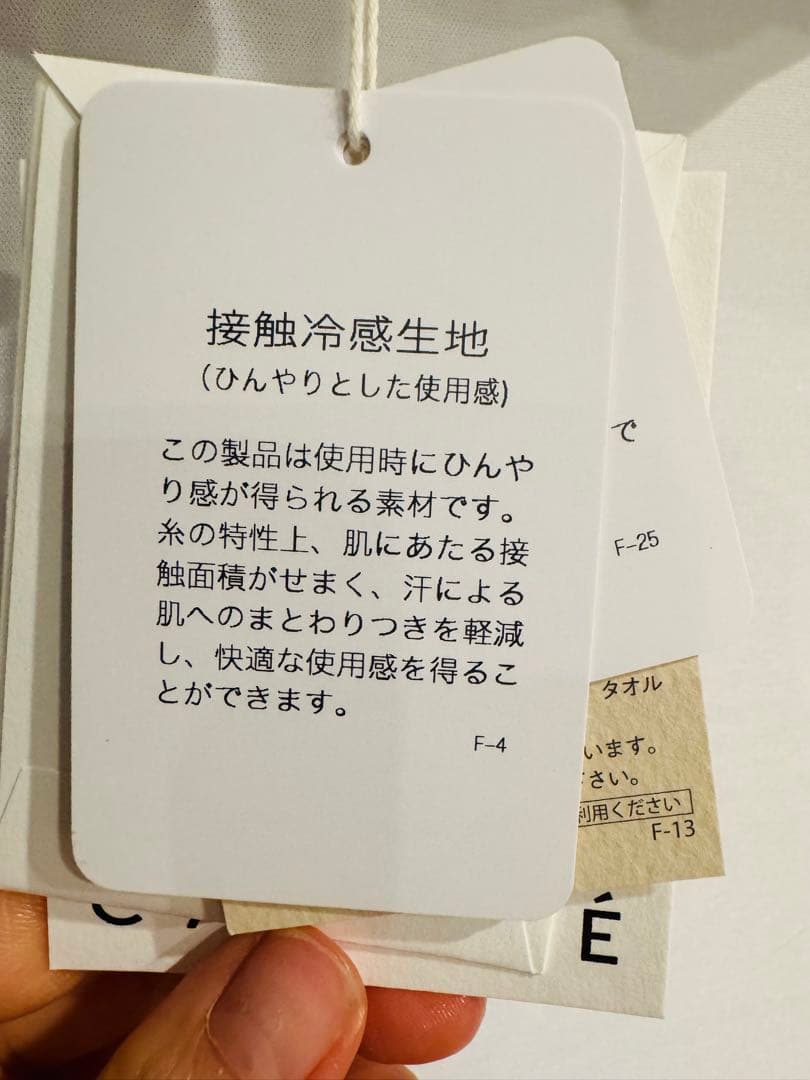 接触冷感生地
(ひんやりとした使用感)
この製品は使用時にひんや
り感が得られる素材です。
糸の特性上、肌にあたる接
触面積がせまく、汗による
肌へのまとわりつきを軽減
し、快適な使用感を得るこ
とができます。
F-4
で
F-25
タオル
います。
さい。
利用ください
F-13
É